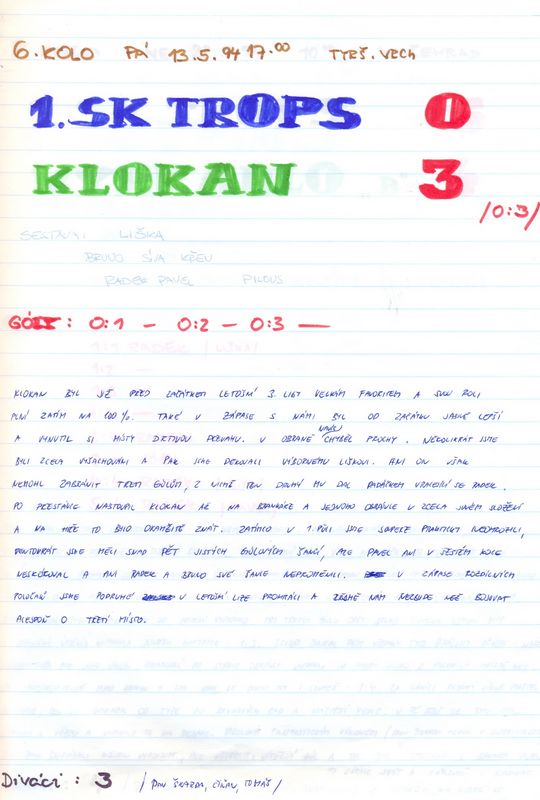 6. KOLO PÁ 13.5.94 17.00 TYRŠ. VECH
1.SK TROPS 0
KLOKAN 3
/0:3/
SESTAVA: LIŠKA
BRUNO SÍVA KŘEN
RADEK PAVEL PILOUS
GÓLY: 0:1 - 0:2 - 0:3 -
KLOKAN BYL JIŽ PŘED ZAČÁTKEM LETOŠNÍ 3. LIGY VELKÝM FAVORITEM A SVOU ROLI
PLNÍ ZATÍM NA 100%. TAKÉ V ZÁPASE S NÁMI BYL OD ZAČÁTKU JASNĚ LEPŠÍ
A VYNUTIL SI MÍSTY DRTIVOU PŘEVAHU. V OBRANĚ NAVÍC CHYBĚL PROCHY. NĚKOLIKRÁT JSME
BYLI ZCELA VYŠACHOVÁNI A PAK JSME DĚKOVALI VÝBORNÉMU LIŠKOVI. ANI ON VŠAK
NEMOHL ZABRÁNIT TŘEM GÓLŮM, Z NICHŽ TEN DRUHÝ MU DAL PADÁKEM VRACEJÍCÍ SE RADEK.
PO PŘESTÁVCE NASTOUPIL KLOKAN AŽ NA BRANKÁŘE A JEDNOHO OBRÁNCE V ZCELA JINÉM SLOŽENÍ
A NA HŘE TO BYLO OKAMŽITĚ ZNÁT. ZATÍMCO V 1. PŮLI JSME SOUPEŘE PRAKTICKY NEOHROZILI,
TENTOKRÁT JSME MĚLI SNAD PĚT JISTÝCH GÓLOVÝCH ŠANCÍ, ALE PAVEL ANI V ŠESTÉM KOLE
NESKÓROVAL A ANI RADEK A BRUNO SVÉ ŠANCE NEPROMĚNILI. V ZÁPASE ROZDÍLNÝCH
POLOČASŮ JSME PODRUHÉ V LETOŠNÍ LIZE PROHRÁLI A ZŘEJMĚ NÁM NEZBUDE NEŽ BOJOVAT
ALESPOŇ O TŘETÍ MÍSTO.
Diváci: 3 / PAN ŠKAZDA, ČIŇAN, TOMÁŠ /